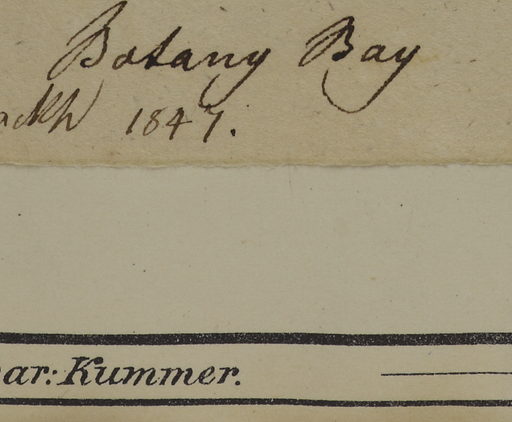 Botany Bay
1847.
ar: Kummer.